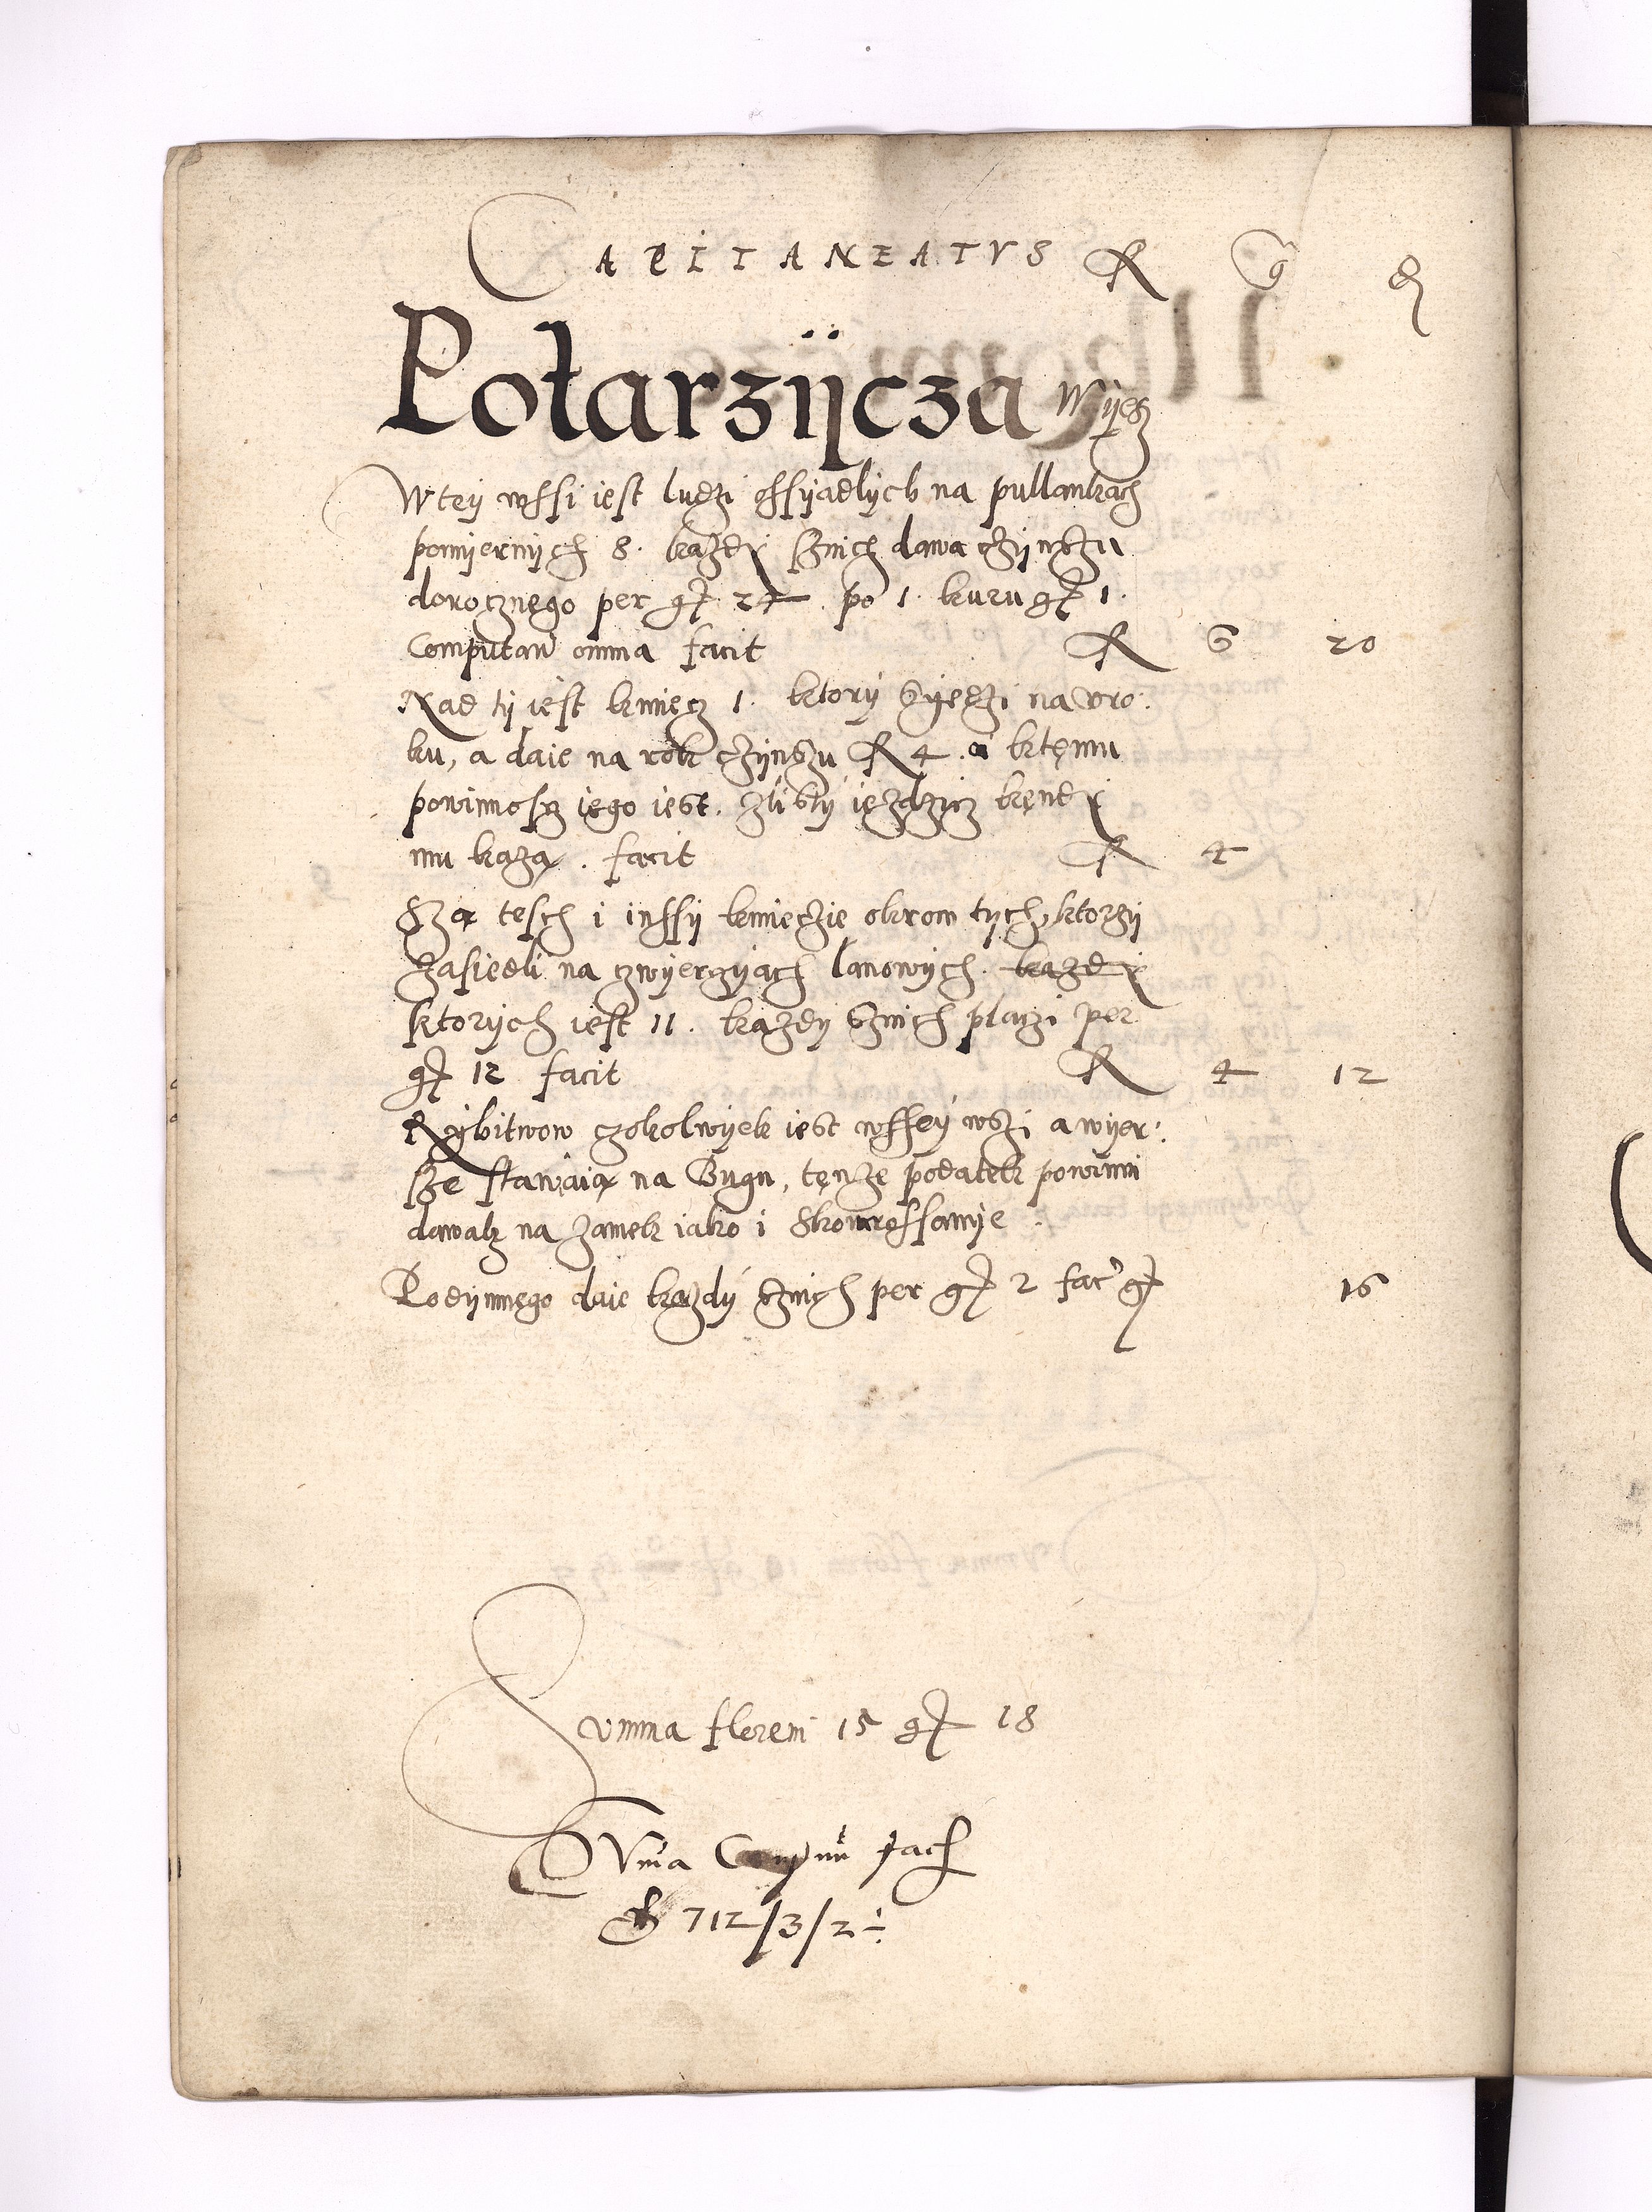 CAPITANEATVS R g d
Połarzÿcza Wÿesz
W teÿ wssi iest ludzi ossÿadlych na pullankach
pomÿernÿch 8. kazdÿ sznich dawa czÿnszu
dorocznego per gr 24 po 1. kuru gr 1.
Computan omnia facit R 6 20
Nad tÿ iest kmiecz 1. ktorÿ Syedzi na vro
ku, a daie na rok czÿnszu R 4. a ktemu
powinnoscz iego iest. zlistÿ iezdzicz kendÿ
mu kazą. facit R 4
Szą tesch i inssÿ kmieczie okrom tych, ktorzÿ
zasiedli na czwÿerczÿach lanowÿch. kazdÿ
ktorÿch iest 11. kazdÿ sznich placzi per
gr 12 facit R 4 12
Rÿbitwow czokolwÿek iest wsseÿ wszi a wÿer
sze stawaią na Bugu, tenze podatek powinni
dawacz na zamek iako i
Podÿmnego daie kazdÿ sznich per gr 2 fac gr 16
Summa floreni 15 gr 18
SVma fach
712/3/2÷